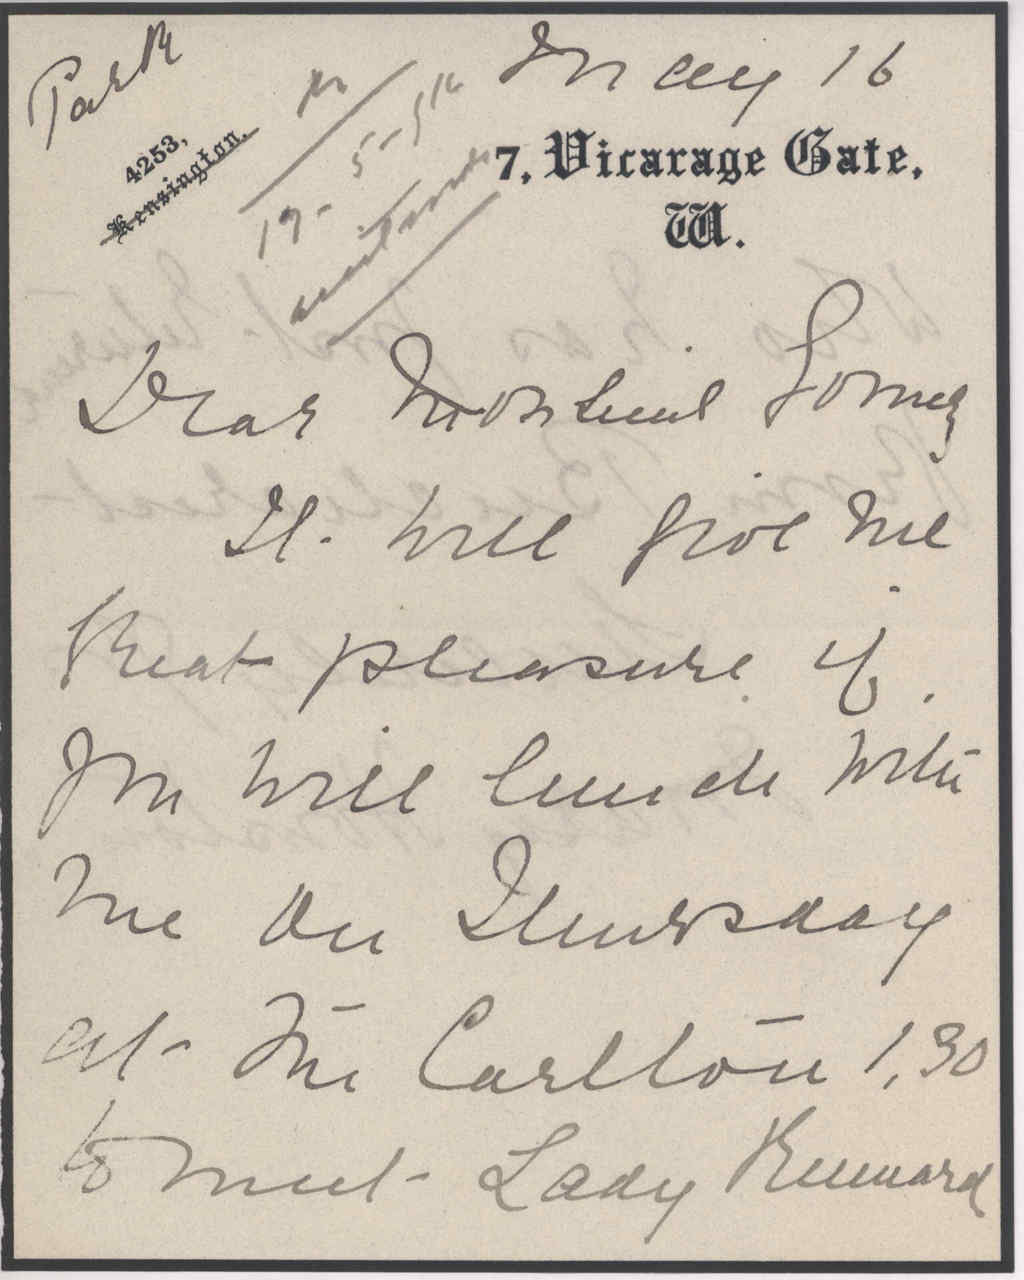 Park
4253,
Kensington.
May 16
7, Vicarage Gate,
W.
17-5-16
Dear Monsieur Gomez
It will give me
great pleasure if
you will lunch with
me on Thursday
at the Carlton 1,30
to meet Lady Kennard